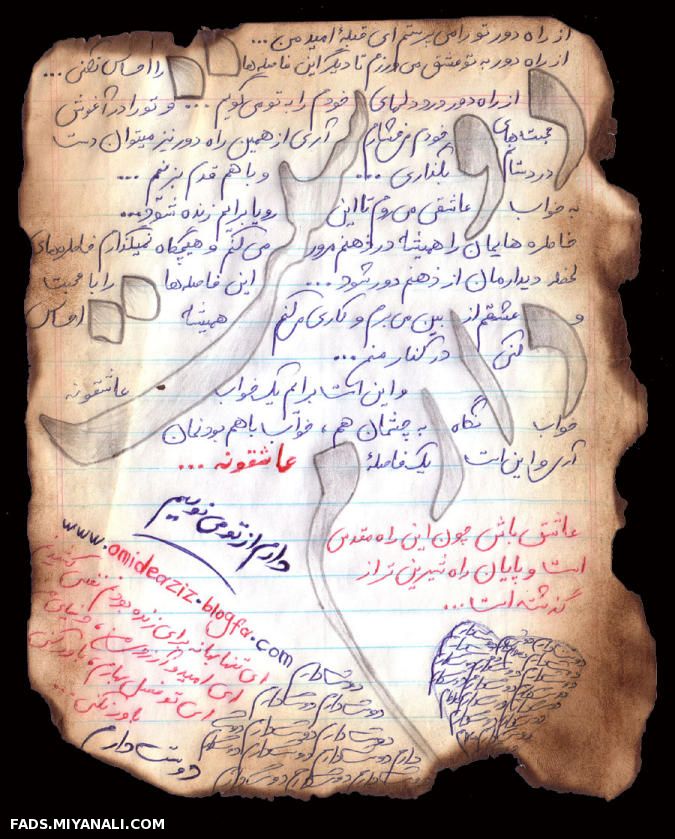 از راه دور تو را می پرستم ای قبلهٔ امید من ...
از راه دور به تو عشق می ورزم تا دیگر این فاصله‌ها را احساس نکنی ...
از راه دور درد دلهای خودم را به تو می گویم ... و تو را در آغوش
محبت های خودم می فشارم آری از همین راه دور نیز میتوان دست
در دستانم بگذاری ... و با هم قدم بزنیم ...
به خواب عاشقی می روم تا این رویا برایم زنده شود ...
خاطره هایمان را همیشه در ذهنم مرور می کنم و هیچگاه نمیگذارم خاطره‌های
لحظه دیدارمان از ذهنم دور شود ... این فاصله‌ها را با محبت
و عشقم از بین می برم و کاری می کنم همیشه احساس
کنی در کنار منی ...
و این است برایم یک خواب عاشقونه
خواب نگاه به چشمان هم ، خواب با هم بودنمان
آری و این است یک فاصلهٔ عاشقونه ...
دارم از تو می نویسم
www.omideaziz.blogfa.com
عاشق باش چون این راه مقدس
است و پایان راه شیرین تر از
گذشته است ...
ای تنها بهانه برای زنده بودنم نفس کشیدنم
ای امید و آرزوی من
باور نکنی ...
دوست دارم
دوست دارم
دوست دارم دوست دارم
FADS.MIYANALI.COM